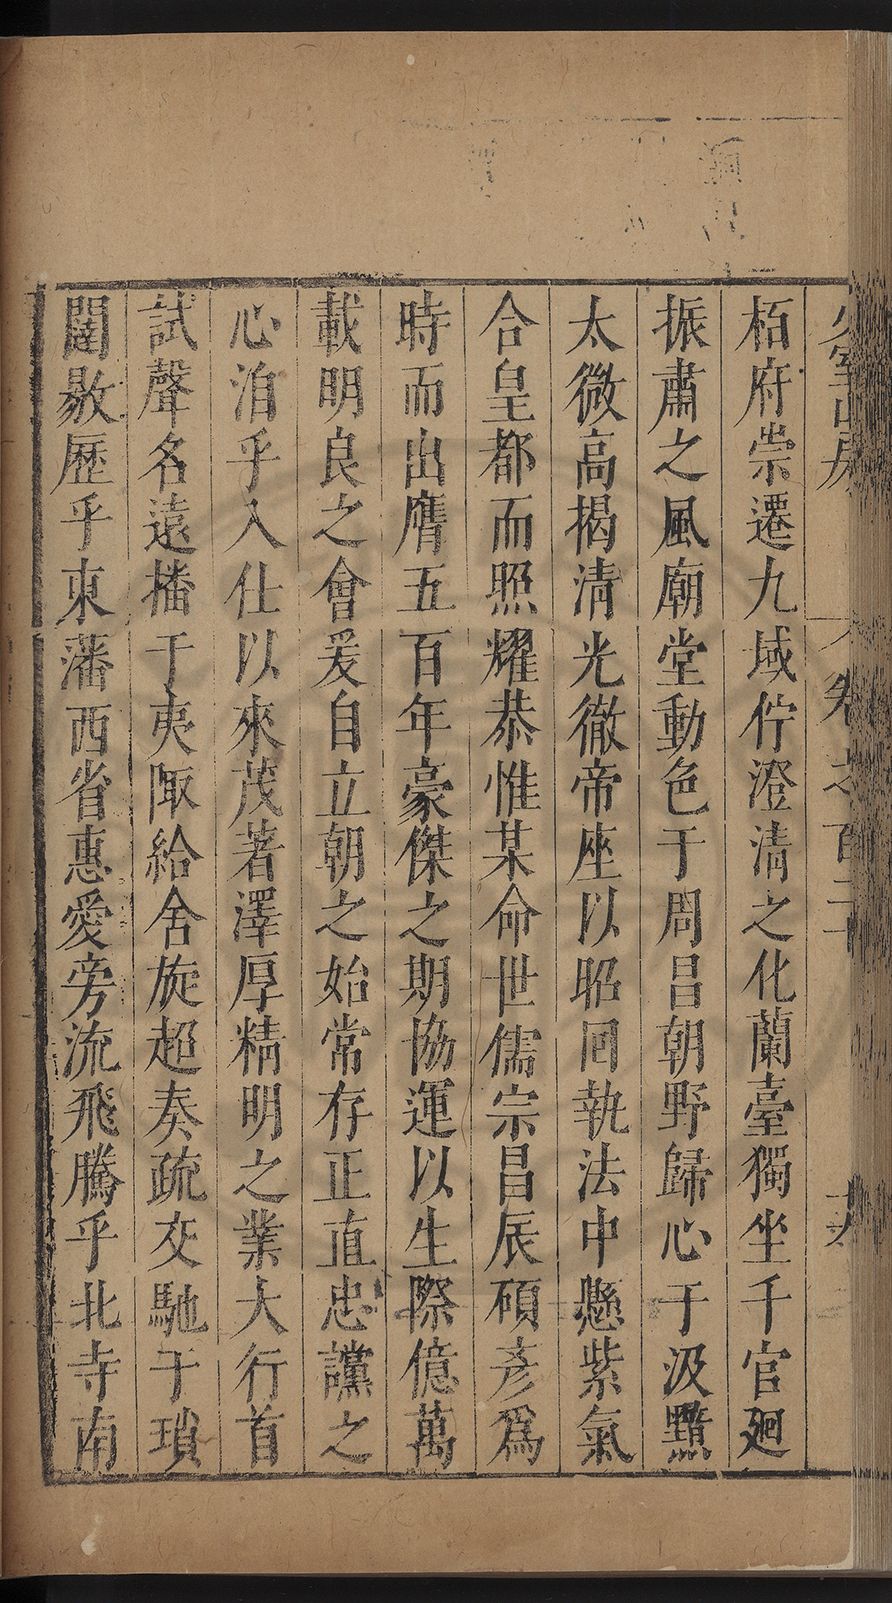 栢府崇遷九域佇澄清之化蘭臺獨坐千官廻
振肅之風廟堂動色于周昌朝野歸心于汲黯
太微高揭清光徹帝座以昭囘執法中懸紫氣
合皇都而照耀恭惟某命世儒宗昌辰碩彥爲
時而出膺五百年豪傑之期協運以生際億萬
載明良之會爰自立朝之始常存正直忠讜之
心洎乎入仕以來茂著澤厚精明之業大行首
試聲名遠播于夷陬給舍旋超奏疏交馳于瑣
闥敭歷乎東藩西省惠愛旁流飛騰乎北寺南